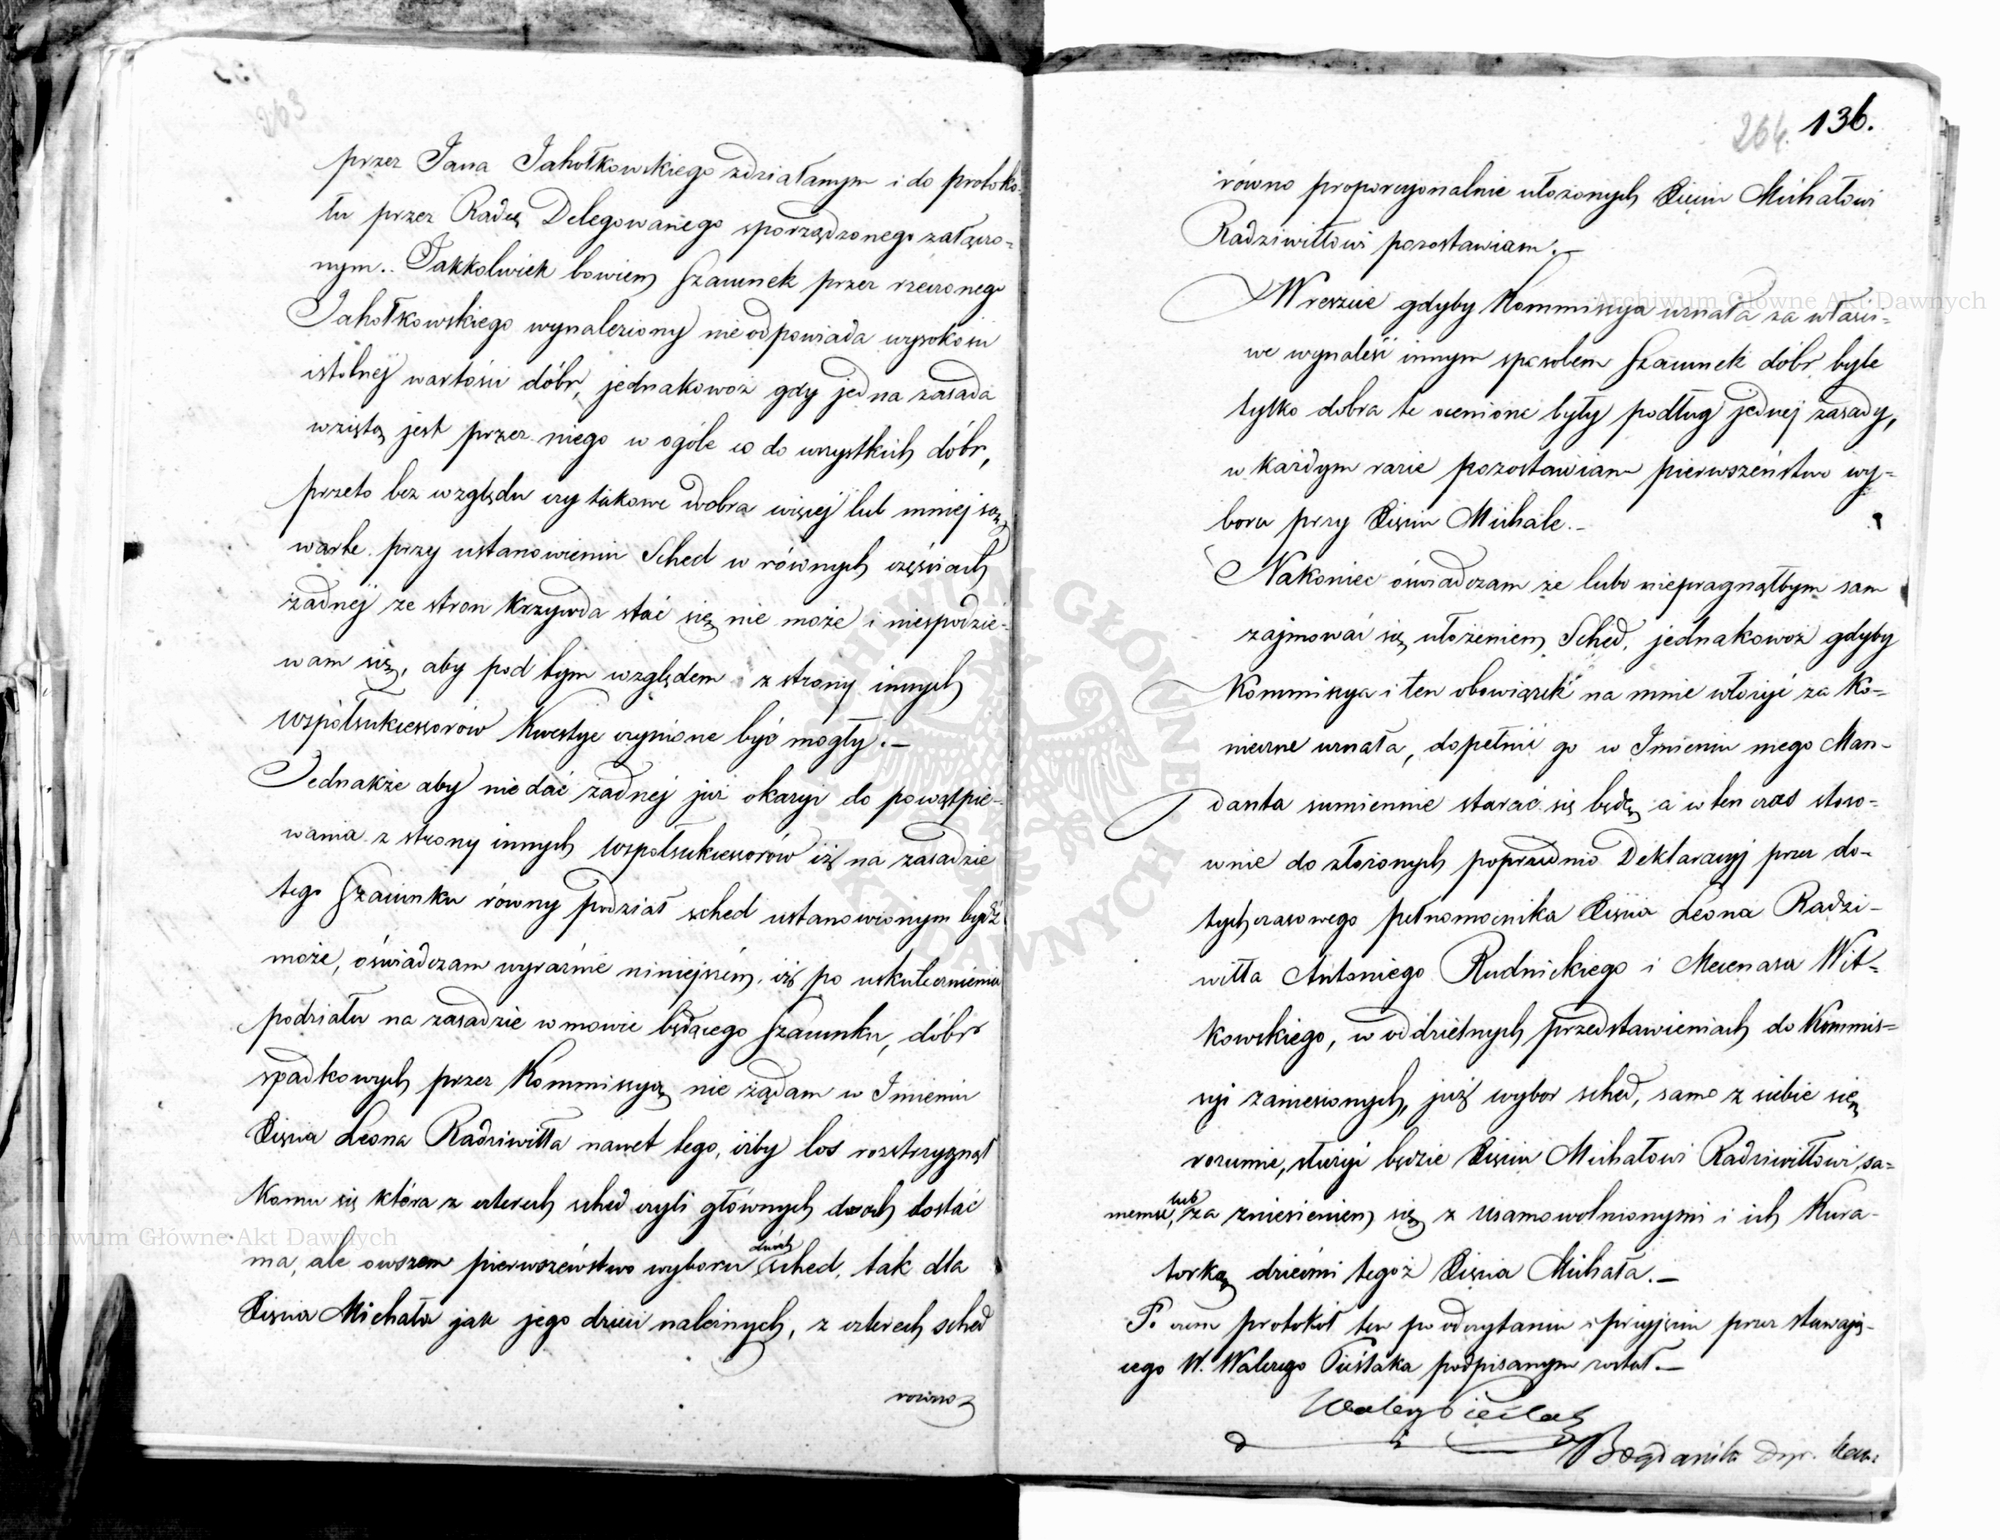 263
przez Jana Jahołkowskiego zdziałanym i do protoko-
łu przez Radcę Delegowanego sporządzonego załączo-
nym.. Jakkolwiek bowiem szacunek przez rzeczonego
Jahołkowskiego wynaleziony nie odpowiada wysokości
istotnéj wartości dóbr, jednakowoż gdy jedna zasada
wziętą jest przez niego w ogóle co do wszystkich dóbr,
przeto bez względu czy takowe dobra więcéj lub mniéj są
warte przy ustanowieniu Sched w równych częściach
żadnéj ze stron krzywda stać się nie może i niespodzié-
wam się, aby pod tym względem i z strony innych
współsukcessorów kwestye czynione być mogły. —
Jednakże aby nie dać żadnéj już okazyi do powątpie-
wania z strony innych współsukcessorów iż na zasadzie
tego szacunku równy podział sched ustanowionym bydź
może, oświadczam wyraźnie niniejszém, iż po uskutecznieniu
podziału na zasadzie w mowie będącego szacunku, dóbr
spadkowych przez Kommissyą nie żądam w Imieniu
Xięcia Leona Radziwiłła nawet tego, iżby los rozstrzygnął
komu się która z czterech sched czyli głównych dwóch dostać
ma, ale owszem pierwszeństwo wyboru dwóch sched, tak dla
Xięcia Michała jak jego dzieci należnych, z czterech sched
równo
264. 136.
równo proporcyonalnie ułożonych Xięciu Michałowi
Radziwiłłowi pozostawiam. —
Wreszcie gdyby Kommissya uznała za właści-
we wynaleść innym sposobem szacunek dóbr byle
tylko dobra te ocenione były podług jednéj zasady,
w każdym razie pozostawiam pierwszeństwo wy-
boru przy Xięciu Michale. —
Nakoniec oświadczam że lubo niepragnąłbym sam
zajmować się ułożeniem Sched, jednakowoż gdyby
Kommissya i ten obowiązek na mnie włożyć za ko-
nieczne uznała, dopełnić go w Imieniu mego Man-
danta sumiennie starać się będę, a w ten czas stoso-
wnie do złożonych poprzednio Deklaracyj przez do-
tychczasowego pełnomocnika Xięcia Leona Radzi-
wiłła Antoniego Rudnickiego i Mecenasa Wit-
kowskiego, w oddzielnych przedstawieniach do Kommis-
syi zaniesionych, już wybor sched, samo z siebie się
rozumie, służyć będzie Xięciu Michałowi Radziwiłłowi, sa-
memu, lub za zniesieniem się z usamowolnionymi i ich Kura-
torką dziećmi tegoż Xięcia Michała. —
Po czem protokół ten po odczytaniu i przyjęciu przez stawają-
cego W. Walerego Cieślaka podpisanym został. —
Walery Cieślak